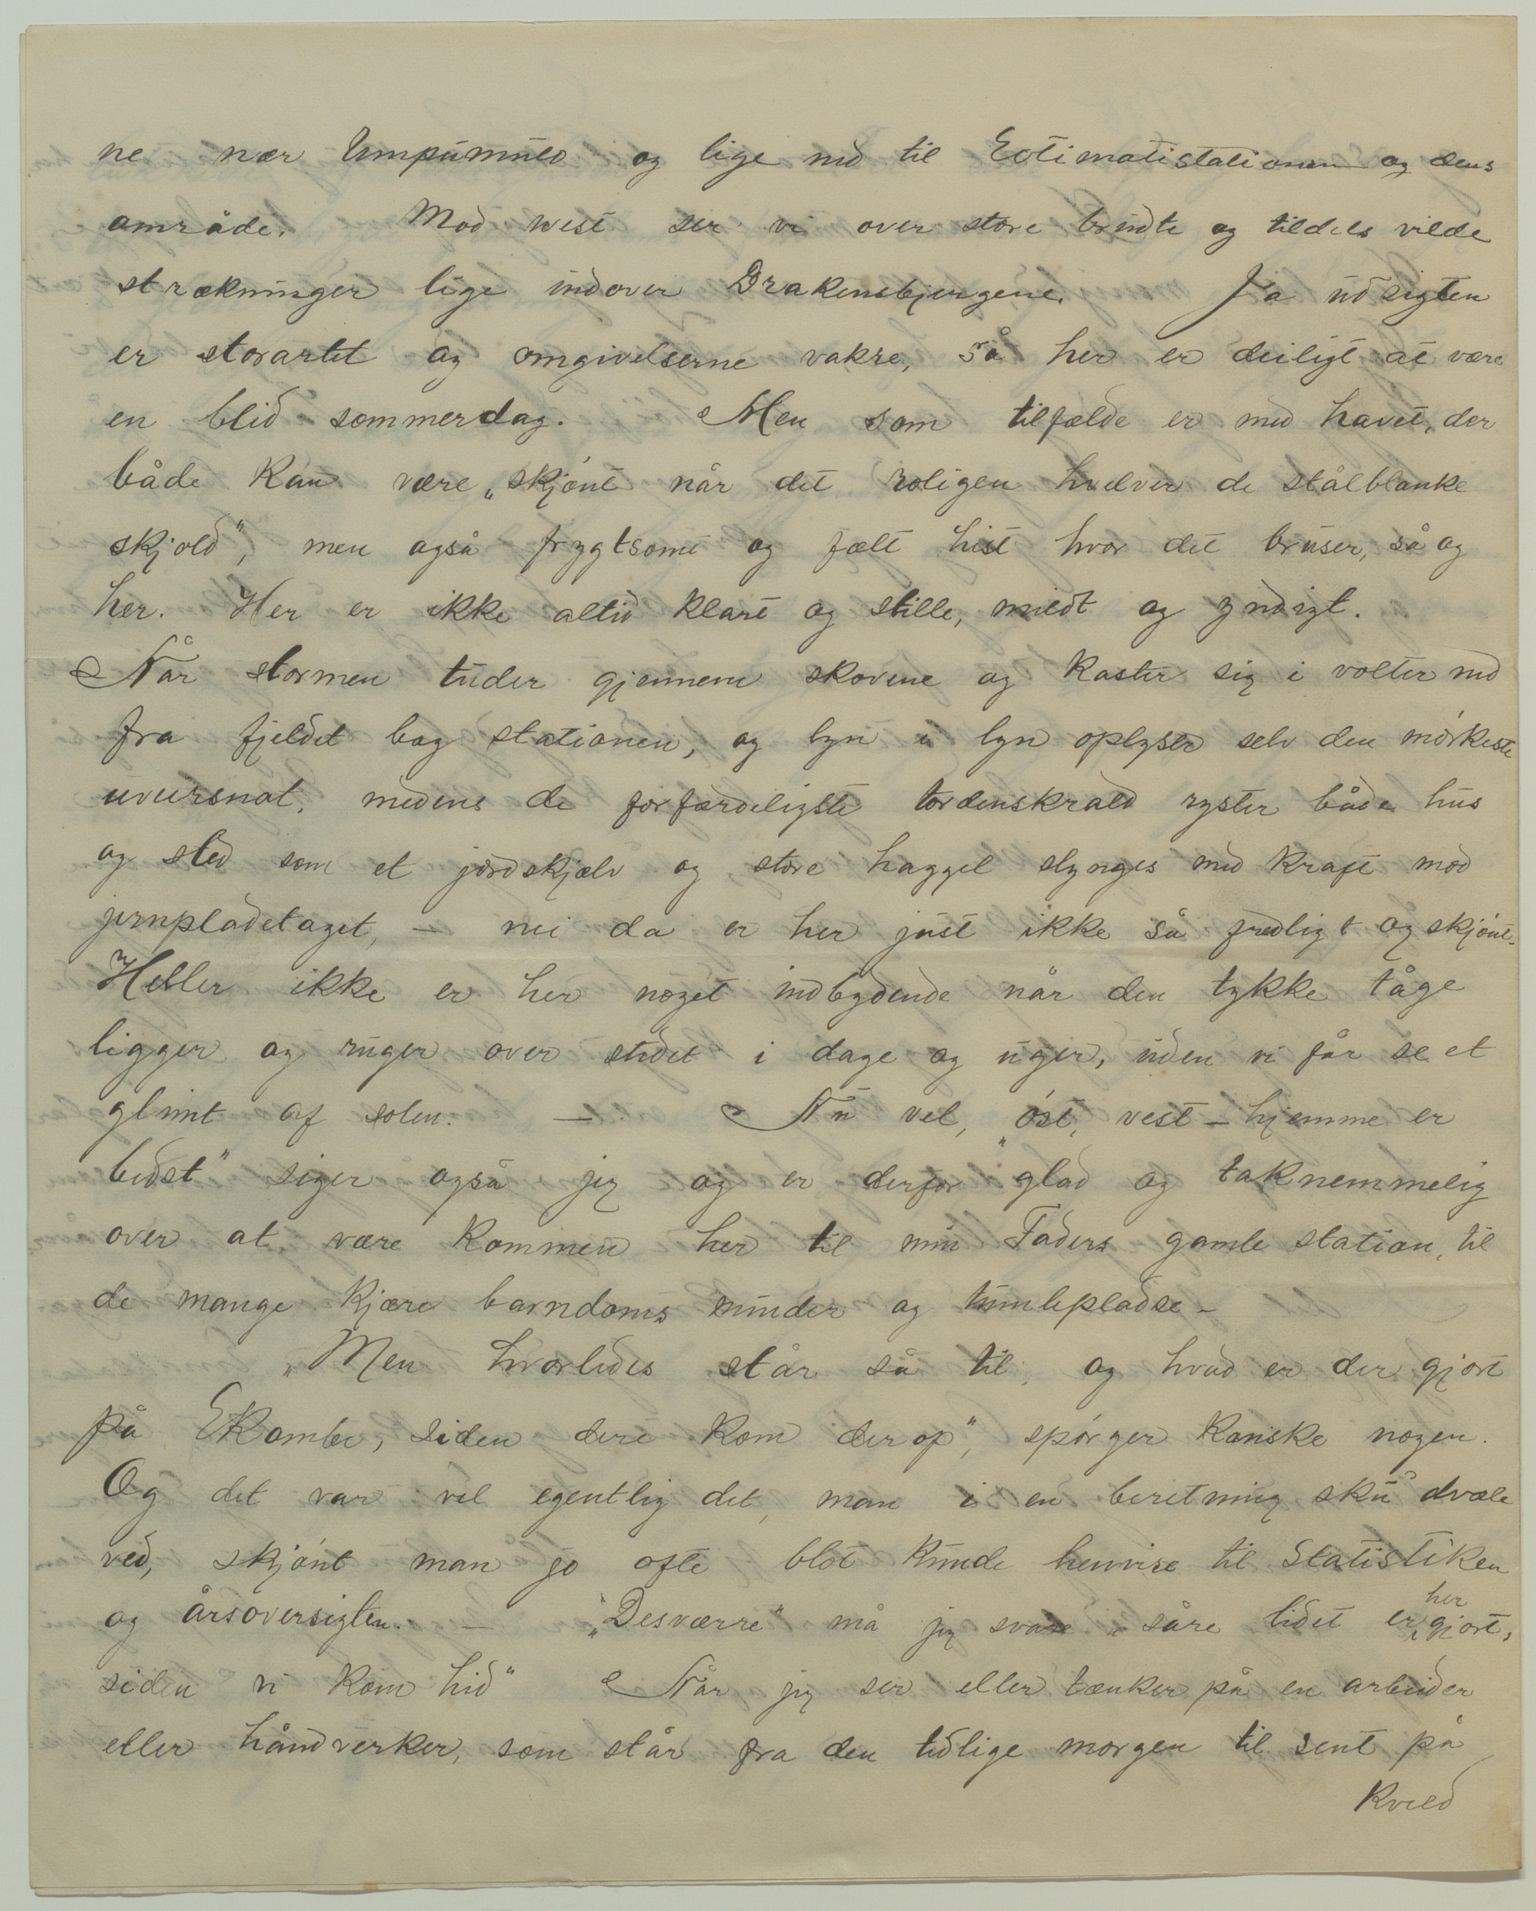 ne nær Umpumulo og lige ned til Eotimatistationen og dens
område. Mod west ser vi over store brudte og tildels vilde
strækninger lige indover Drakensbjergene. Ja udsigten
er storartet og omgivelserne vakre, så her er deiligt at være
en blid sommerdag. Men som tilfælde er med havet, der
både kan være „skjønt når det roligen hvælver de stålblanke
skjold", men også frygtsomt og fælt hist hvor det bruser, så og
her. Her er ikke altid klart og stille, mildt og yndigt.
Når stormen tuder gjennem skovene og kaster sig i volter ned
fra fjeldet bag stationen, og lyn i lyn oplyser selv den mørkeste
uveirsnat, medens de forfærdeligste tordenskrald ryster både hus
og sted som et jordskjælv og store haggel slynges med kraft mod
jernpladetaget, – nei da er her just ikke så fredligt og skjønt.
Heller ikke er her noget indbydende når den tykke tåge
ligger og ruger over stedet i dage og uger, uden vi får se et
glimt af solen. – Nu vel, „øst, vest – hjemme er
bedst" siger også jeg og er derfor glad og taknemmelig
over at være kommen her til min Faders gamle station, til
de mange kjære barndoms minder og tumlepladse –
„Men hvorledes står så til, og hvad er der gjort
på Ekombe, siden dere kom derop", spørger kanske nogen.
Og det var vel egentlig det, man i en beretning sku' dvæle
ved, skjønt man jo ofte blot kunde henvise til Statistiken
og årsoversigten. – „Desværre" må jeg svare „såre lidet er her gjort,
siden vi kom hid" Når jeg ser eller tænker på en arbeider
eller håndverker, som står fra den tidlige morgen til sent på
kveld